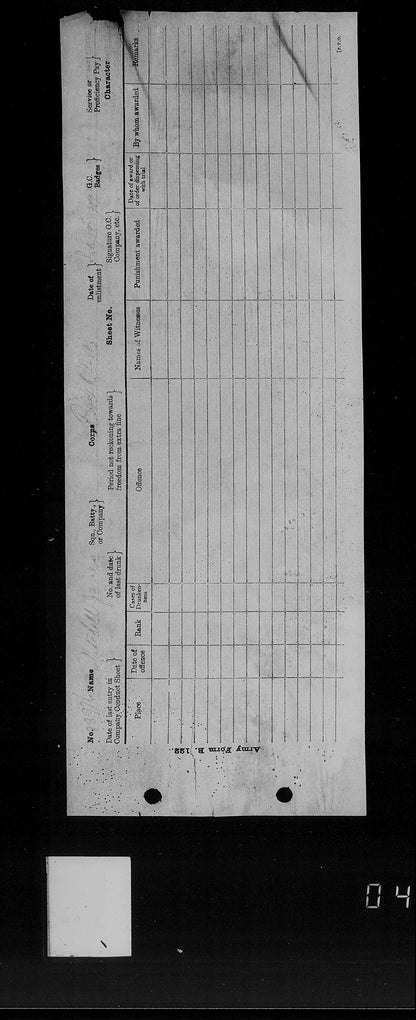 No.
Name
Sqn., Batty., or Company }
Corps
Date of enlistment }
G.C. Badges }
Service or Proficiency Pay }
Date of last entry in Company Conduct Sheet }
No. and date of last drunk }
Period not reckoning towards freedom from extra fine }
Sheet No.
Signature O.C. Company, etc. }
Character
Place
Date of offence
Rank
Cases of Drunkenness
Offence
Names of Witnesses
Punishment awarded
Date of award or of order dispensing with trial
By whom awarded
Remarks
[P.T.O.
Army Form B. 122.
04